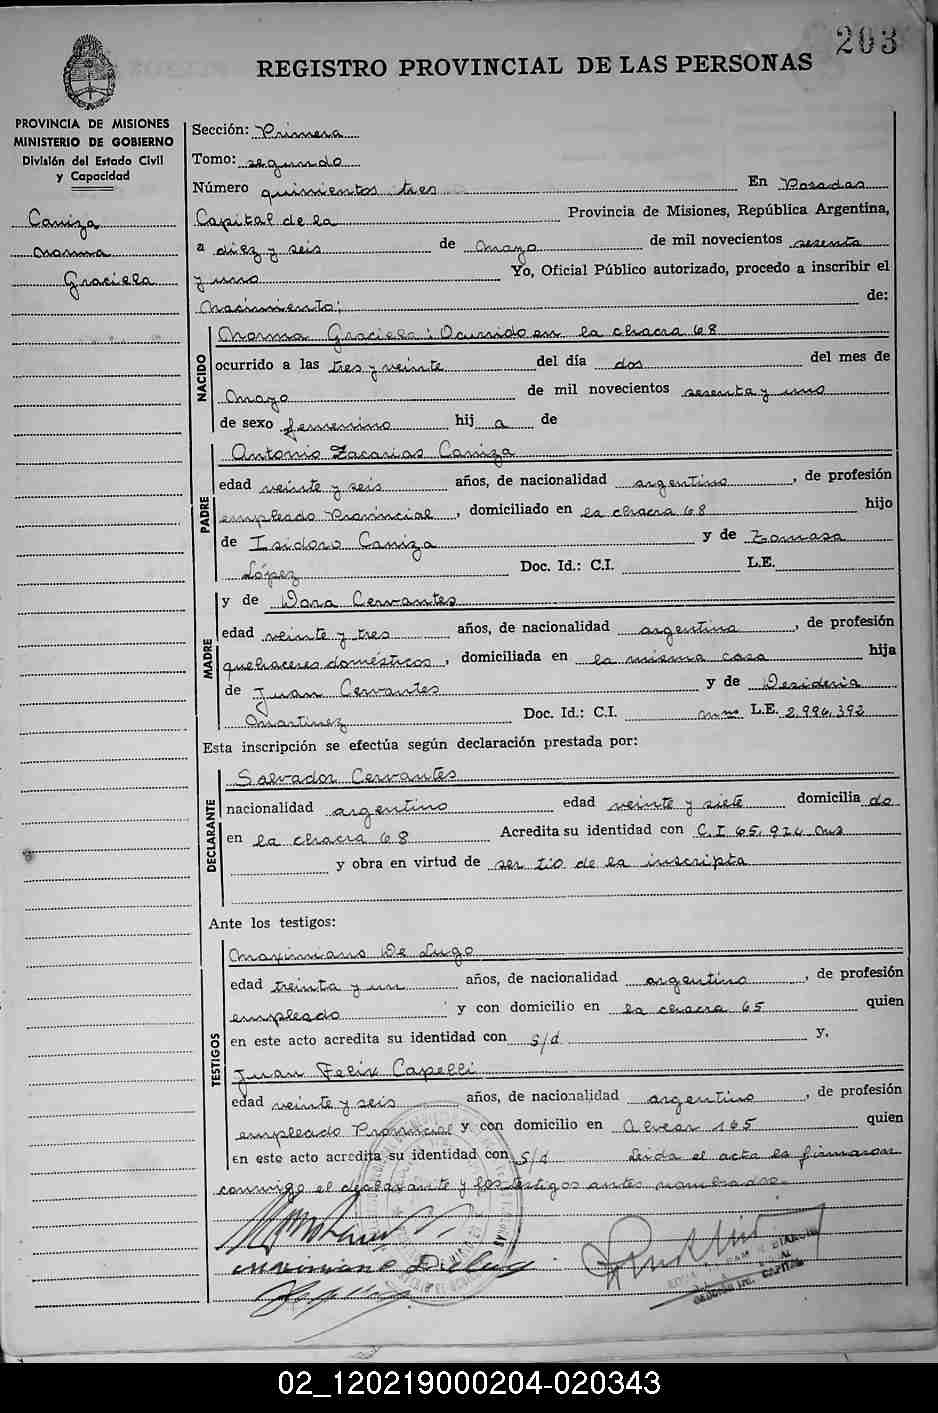 203
REGISTRO PROVINCIAL DE LAS PERSONAS
PROVINCIA DE MISIONES
MINISTERIO DE GOBIERNO
División del Estado Civil
y Capacidad
Caniza
Norma
Graciela
Sección: Primera
Tomo: segundo
Número quinientos tres En Posadas
Capital de la Provincia de Misiones, República Argentina,
a diez y seis de Mayo de mil novecientos sesenta
y uno Yo, Oficial Público autorizado, procedo a inscribir el
Nacimiento; de:
NACIDO
Norma Graciela; Ocurrido en la chacra 68
ocurrido a las tres y veinte del día dos del mes de
Mayo de mil novecientos sesenta y uno
de sexo femenino hij a de
PADRE
Antonio Zacarias Caniza
edad veinte y seis años, de nacionalidad argentino, de profesión
empleado Provincial, domiciliado en la chacra 68 hijo
de Isidoro Caniza y de Tomasa
López Doc. Id.: C.I. L.E.
MADRE
y de Dora Cervantes
edad veinte y tres años, de nacionalidad argentina, de profesión
quehaceres domésticos, domiciliada en la misma casa hija
de Juan Cervantes y de Desideria
Martinez Doc. Id.: C.I. L.E. 2.996.392
Esta inscripción se efectúa según declaración prestada por:
DECLARANTE
Salvador Cervantes
nacionalidad argentino edad veinte y siete domicilia do
en la chacra 68 Acredita su identidad con C.I 65.924
y obra en virtud de ser tio de la inscripta
Ante los testigos:
TESTIGOS
Maximiano De Lugo
edad treinta y un años, de nacionalidad argentino, de profesión
empleado y con domicilio en la chacra 65 quien
en este acto acredita su identidad con s/d y,
Juan Felix Capelli
edad veinte y seis años, de nacionalidad argentino, de profesión
empleado Provincial y con domicilio en Alvear 165 quien
en este acto acredita su identidad con s/d Leida el acta la firmaron
conmigo el declarante y los testigos antes nombrados.
02_120219000204-020343